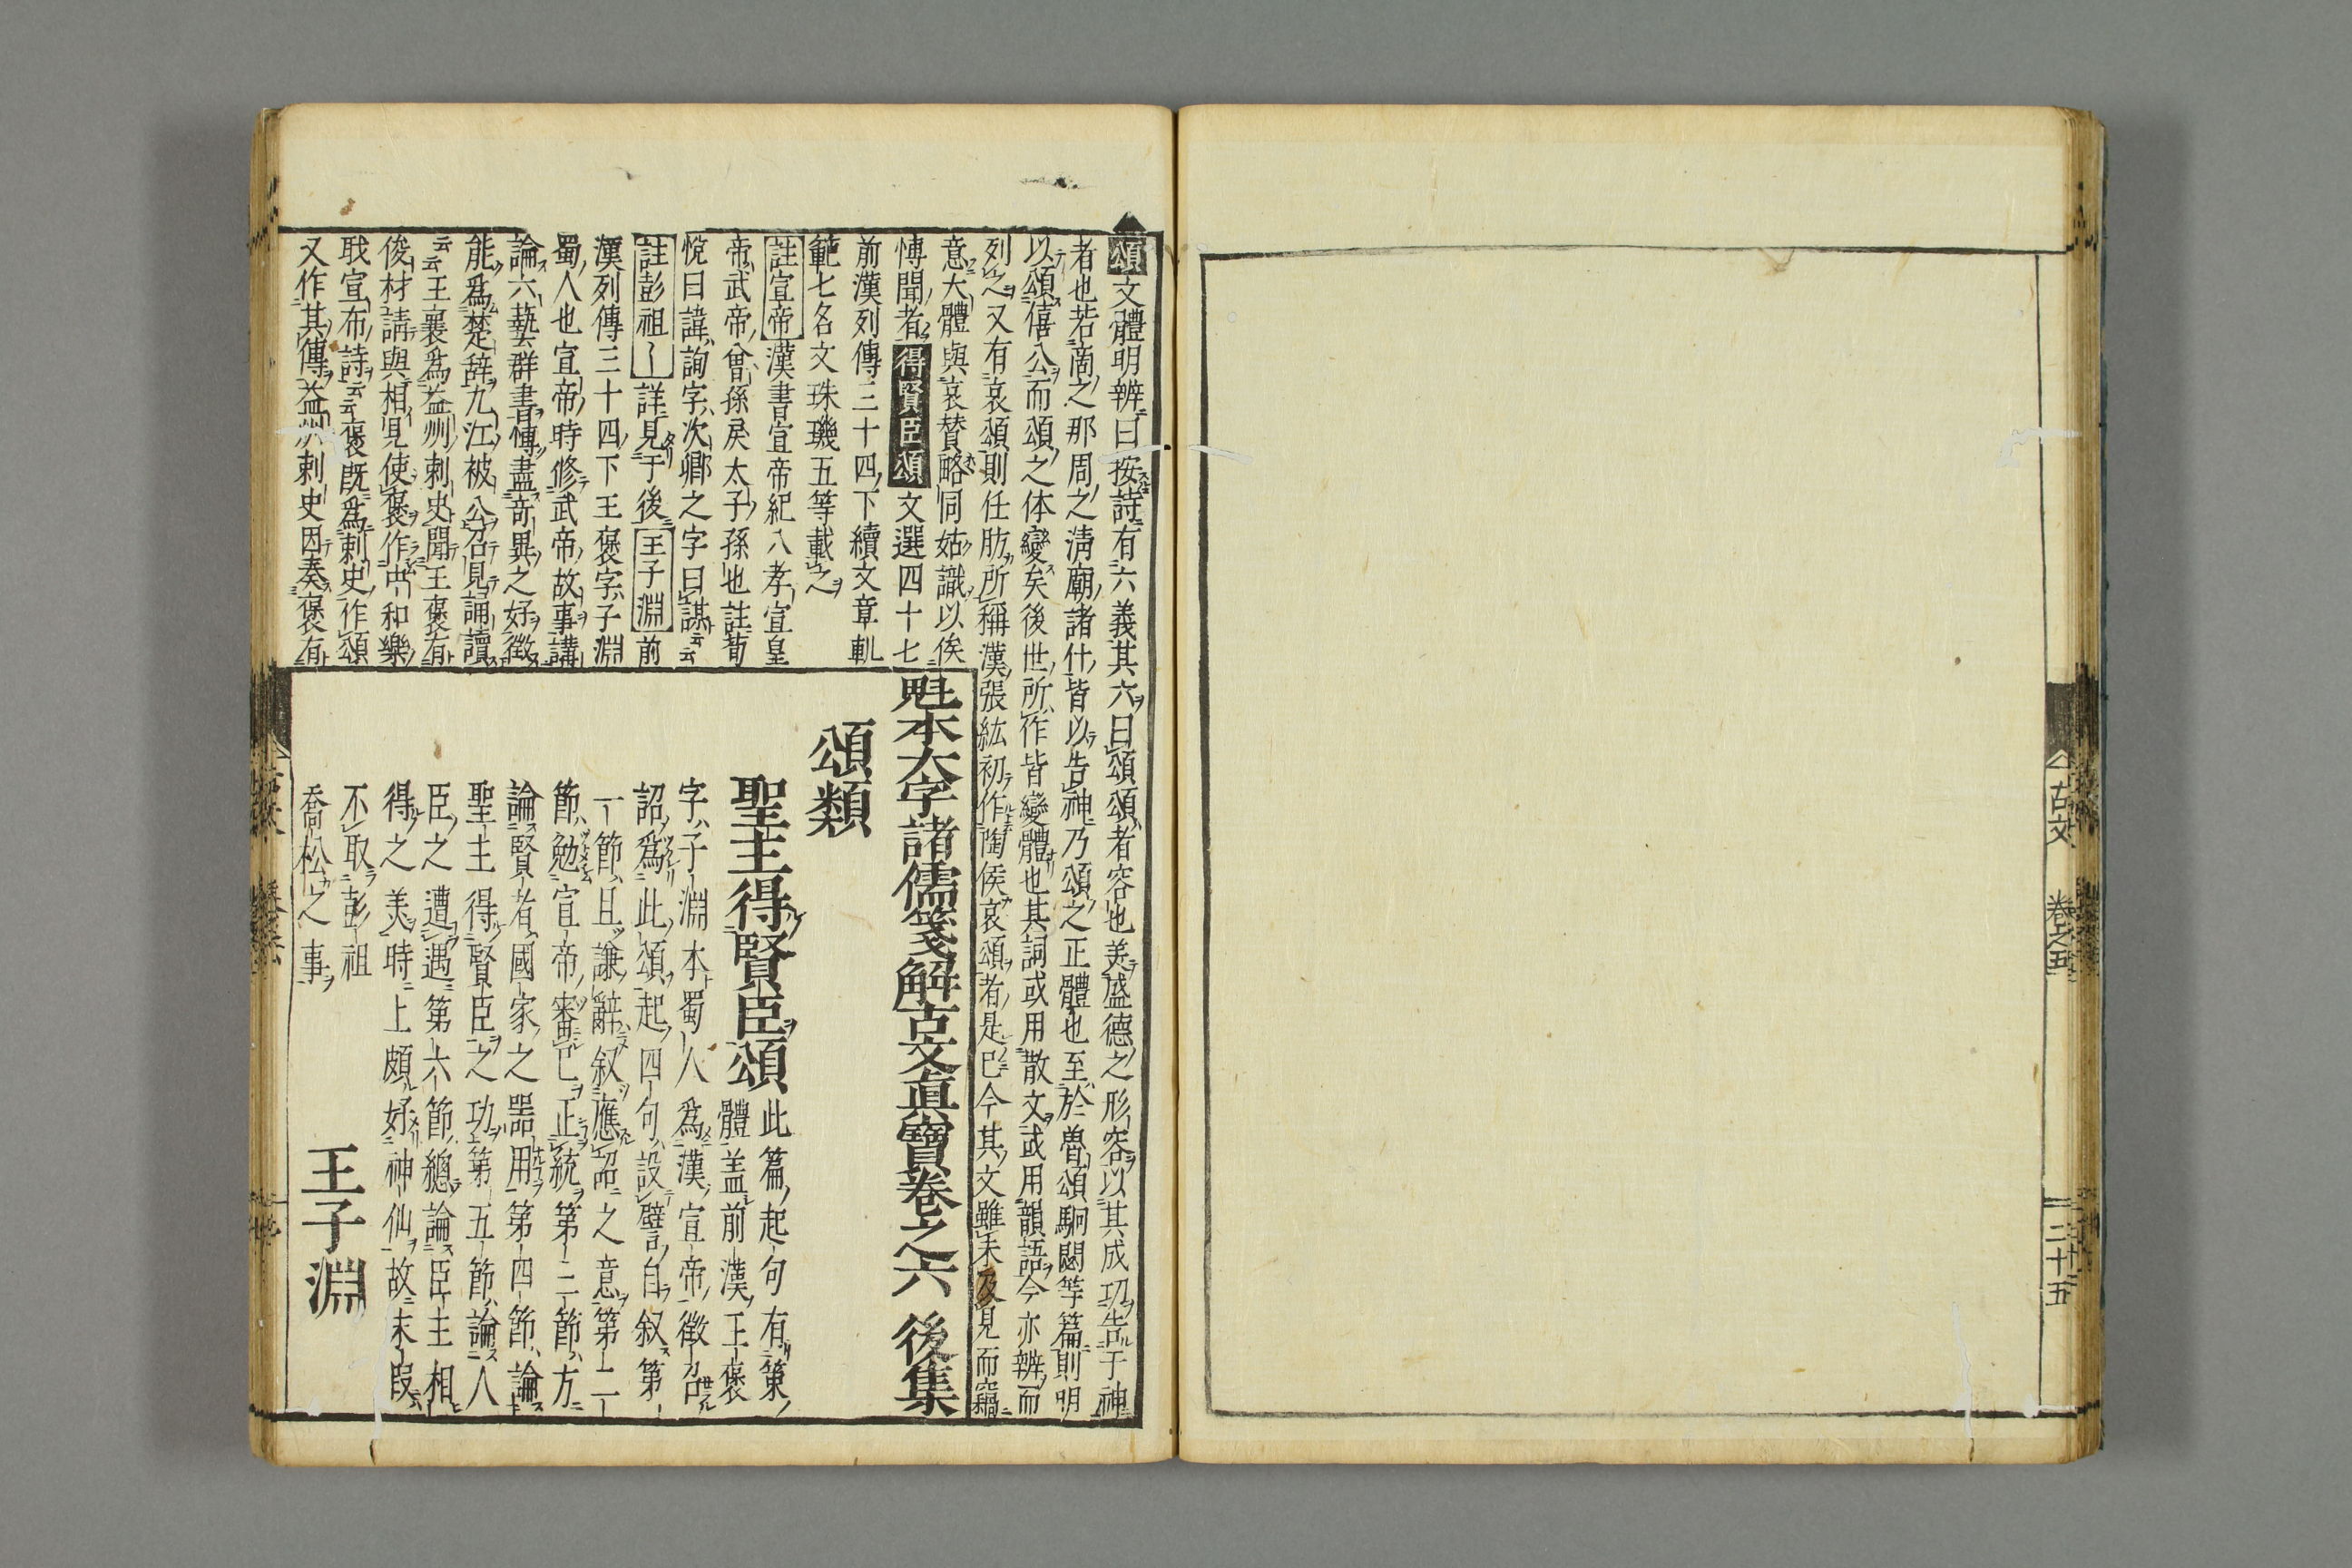 古文
卷之五
二十五
頌文體明辨曰按詩有六義其六曰頌頌者容也美盛德之形容以其成功告于神
者也若商之那周之清廟諸什皆以告神乃頌之正體也至於魯頌駉閟等篇則明
以頌僖公而頌之体變矣後世所作皆變體也其詞或用散文或用韻語今亦辨而
列之又有哀頌則任肪所稱漢張紘初作陶侯哀頌者是巳今其文雖未及見而竊
意大體與哀賛略同姑識以俟
愽聞者得賢臣頌文選四十七
前漢列傳三十四下續文章軌
範七名文珠璣五等載之
註宣帝漢書宣帝紀八孝宣皇
帝武帝曾孫戾太子孫也註荀
悅曰諱詢字次卿之字曰謀云云
註彭祖〡詳見于後王子淵前
漢列傳三十四下王褒字子淵
蜀人也宣帝時修武帝故事講
論六藝群書愽盡奇異之好徵
能爲楚辭九江被公召見誦讀
云云王襄爲益州刺史聞王褒有
俊材請與相見使褒作中和樂
職宣布詩云云褒既爲刺史作頌
又作其傳益州刺史因奏褒有
魁本大字諸儒箋解古文眞寶卷之六 後集
頌類
聖主得賢臣頌
此篇起句有策
體盖前漢王褒
字子淵本蜀人爲漢宣帝徵召
詔爲此頌起四句設譬自叙第
一節且謙辭叙應詔之意第二
節勉宣帝審巳正統第三節方
論賢者國家之器用第四節論
聖主得賢臣之功第五節論人
臣之遭遇第六節總論臣主相
得之美時上頗好神仙故末叚
不取彭祖
喬松之事
王子淵